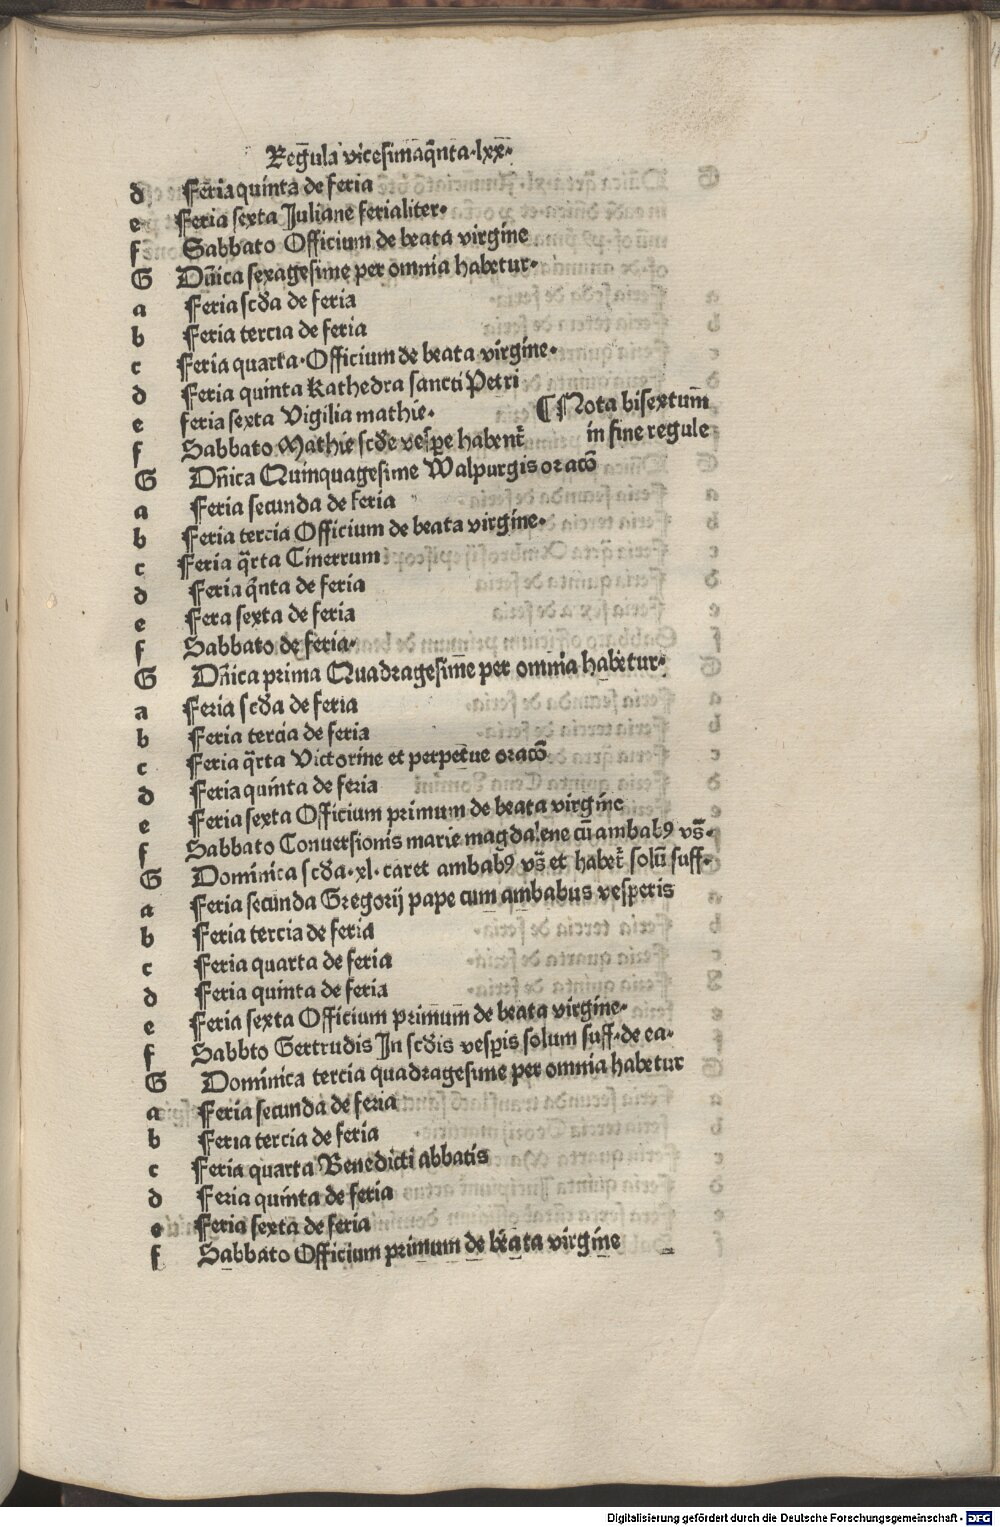 Reg̅ula vicesimaq̅nta·lxx·
d Feria quinta de feria
e Feria sexta Juliane ferialiter·
f Sabbato Officium de beata virgine
G Dn̅ica sexagesime per omnia habetur·
a Feria scd̅a de feria
b Feria tercia de feria
c Feria quarta·Officium de beata virgine·
d Feria quinta Kathedra sancti Petri
e feria sexta Vigilia mathie· ¶Nota bisextum̅
f Sabbato Mathie scd̅e vesꝑe habent᷑ in fine regule
G Dn̅ica Quinquagesime Walpurgis oraco̅
a Feria secunda de feria
b Feria tercia Officium de beata virgine·
c Feria q̅rta Cinerrum
d Feria q̅nta de feria
e Fera sexta de feria
f Sabbato de feria·
G Dn̅ica prima Quadragesim̅e per omnia habetur·
a Feria scd̅a de feria
b Feria tercia de feria
c Feria q̅rta Victorine et perpet̅ue oraco̅
d Feria quinta de feria
e Feria sexta Officium primum de beata virgine
f Sabbato Conuersionis marie magdalene cu̅ ambabꝰ vs̅·
G Dominica scd̅a·xl·caret ambabꝰ vs̅ et habet᷑ solu̅ suff·
a Feria secunda Gregorij pape cum ambabus vesperis
b Feria tercia de feria
c Feria quarta de feria
d Feria quinta de feria
e Feria sexta Officium primum̅ de beata virgine·
f Sabbto Gertrudis In scd̅is vesꝑis solum suff·de ea·
G Dominica tercia quadragesime per omnia habetur
a Feria secunda de feria
b Feria tercia de feria
c Feria quarta Benedicti abbatis
d Feria quinta de feria
e Feria sexta de feria
f Sabbato Officium primum de beata virgine
Digitalisierung gefördert durch die Deutsche Forschungsgemeinschaft - DFG